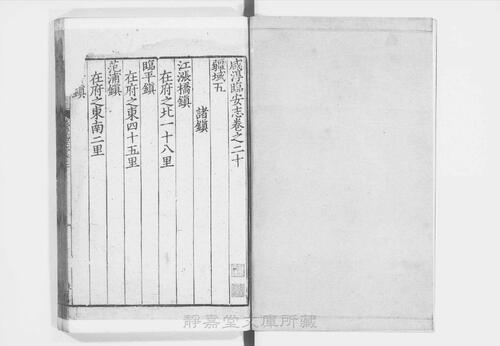 咸淳臨安志卷之二十
疆域五
諸鎮
江漲橋鎮
在府之北一十八里
臨平鎮
在府之東四十五里
范浦鎮
在府之東南二里
鎮
靜嘉堂文庫所藏